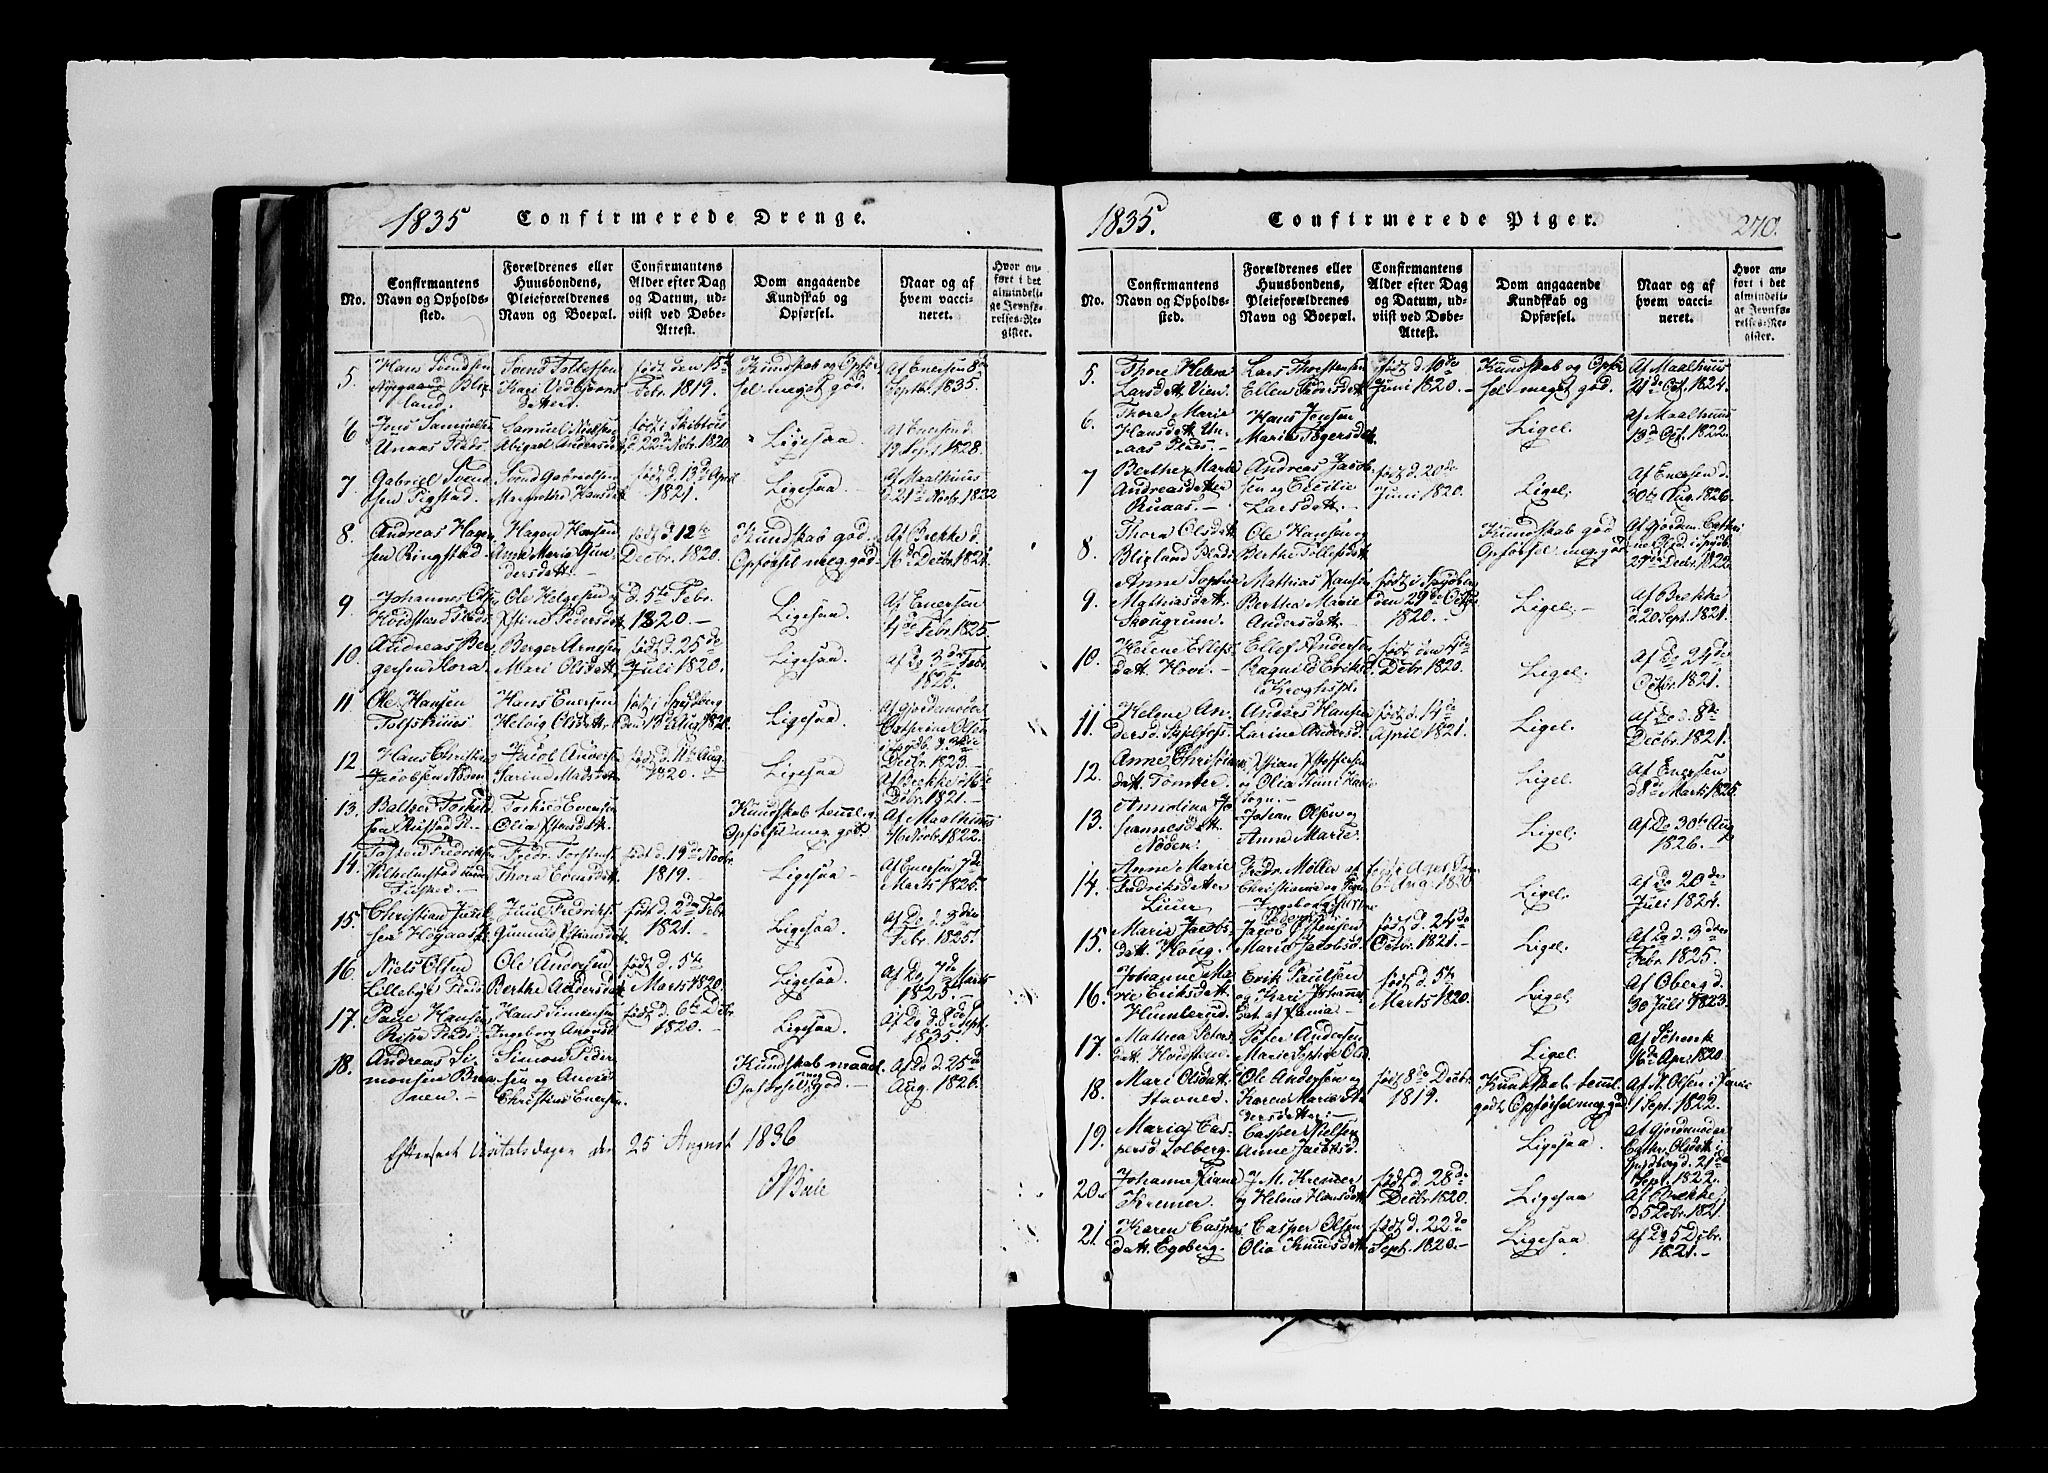 1835 Confirmerede Drenge.
No.
Confirmantens
Navn og Opholds-
sted.
Forældrenes eller
Huusbondens,
Pleieforældrenes
Navn og Boepæl.
Confirmantens
Alder efter Dag
og Datum, ud-
viist ved Døbe-
Attest.
Dom angaaende
Kundskab og
Opførsel.
Naar og af
hvem vacci-
neret.
Hvor an-
ført i det
almindeli-
ge Jevnfø-
relses-Re-
gister.
5.
Hans Svendsen
land.
Svend Tollefsen
Kari
født den 15de
Febr. 1819.
Kundskab og Opfør
sel meget god.
Af Enersen 8de
Septbr. 1835.
6
Jens Samuelsen
Unaas Plads
Samuel Nielsen
Abigael Andersdatt.
født i Skibtvet
d. 22de Nobr. 1820.
Ligesaa.
Af Enersen d.
Sept. 1828.
7.
Gabriel Svend
sen Pigstad.
Svend Gabrielsen
Margrethe Hansdatt.
født d. 13de April
1821.
Ligesaa.
Af Maalhuus
d 21de Novbr. 1822
8.
Andreas Hagen
sen Ringstad.
Hagen Hansen
Anne Maria Gun
dersdatt. –
født d. 12te
Decbr. 1820.
Kundskab god.
Opførsel meg. god.
Af Brekke d.
16de Decbr. 1821.
9.
Johannes Ols.
Hvidsteen Plads
Ole Helgesen og
Stine Pedersdatt.
d. 5te Febr.
1820. –
Ligesaa.
Af Enersen
4de Febr. 1825.
10.
Andreas Ber
gersen Kora.
Berger Arnesen
Mari Olsdatt.
født d. 25de
Juli 1820.
Ligesaa.
Af Do 3de Febr.
1825.
11
Ole Hansen
Hans Enersen
Helvig Olsdatt.
født i Spydberg
den 18de Aug. 1820.
Ligesaa.
Af Gjordemoder
Cathrine Olsen
i Spydb. d.
Decbr. 1823. –
12.
Hans Christian
Jacobsen Noden
Jacob Anders
Karine Madsdatt.
født d. 11te Aug.
1820. –
Ligesaa
Af Brekke d 16de
Decbr. 1821. –
13.
Baltzer Torkild
sen Rustad Pl.
Torkild Evensen
Olia
Kundskab temel.
Opførsel meg. god.
Af Maalhuus
1822.
14.
Fredrikse
Fredr. Torstens
Thora Evensdatt.
født d. 19de Novbr.
1819.
Ligesaa –
Af Enersen 7de
Marts 1825.
15.
Christian Juul
sen Høgaas
Juul Fredriks.
Gunild
født d. 2den Febr.
1821. –
Ligesaa.
Af Do d. 3den
Febr. 1825.
16.
Niels Olsen
Lilleby Plads
Ole Andersen
Berthe Andersdatt.
født d. 5te
Marts 1820.
Ligesaa.
Af Do 7de Marts
1825.
17.
Paul Hansen
Riser Plads
Hans Simensen
Ingeborg Aronsd.
født d. 6te Decbr.
1820.
Ligesaa.
Af Do d. 8de Sept.
1835.
18.
Andreas Si-
monsen
Simon Peder
sen og Anne
Christine Enersen.
Kundskab maadel.
Opførsel meg. god. –
Af Do d. 25de
Aug. 1826.
Efterseet Visitatsdagen den 25 August 1836
1835. Confirmerede Piger. 270.
No.
Confirmantens
Navn og Opholds-
sted.
Forældrenes eller
Huusbondens,
Pleieforældrenes
Navn og Boepæl.
Confirmantens
Alder efter Dag
og Datum, ud-
viist ved Døbe-
Attest.
Dom angaaende
Kundskab og
Opførsel.
Naar og af
hvem vacci-
neret.
Hvor an-
ført i det
almindeli-
ge Jevnfø-
relses-Re-
gister.
5.
Thore Helene
Larsdatt. Vien.
Lars Thorstensen
Ellen Pedersdatt.
født d. 10de
Juni 1820.
Kundskab og Opfør
sel meget god.
Af Maalhuus
21de Oct. 1824.
6.
Thora Marie
Hansdatt. Un-
aas Plads.
Hans Jensen
Marie
Ligel.
Af Maalhuus
13de Oct. 1822.
7
Berthe Marie
Andreasdatter
Ruaas. –
Andreas Jacob
sen og Cecilie
Larsdatt.
født d. 20de
Juni 1820.
Ligel.
Af Enersen d.
30te Aug. 1826.
8.
Thora Olsdatt.
Blixland Plads
Ole Hansen og
Berthe Tollefsdatt.
Kundskab god
Opførsel meg. god
Af Gjordem. Cathri
ne i Spydb.
29de Decbr. 1822
9.
Anne Sophie
Mathiasdatt.
Skougrum.
Mathias Hansen
Berthe Marie
Andersdatt.
født i Spydberg
den 29de Octbr.
1820. –
Ligel. –
Af Brekke
d. 20 Sept. 1821.
10.
Helene Ellefs
datt. Hovi. –
Ellef Andersen
Ragnild Eriksd.
født den 4de
Decbr. 1820.
Ligel.
Af Do 24de
Octbr. 1821.
11.
Helene An
dersd.
Anders Hansen
Karine Andersd.
født d. 14de
April 1821.
Ligel.
Af Do d. 8de
Decbr. 1821.
12.
Anne Christians
datt. Tomter.
Olia
Ligel.
Af Enersen
d 8de Marts 1825.
13.
Annolina Jo
hannesdatt.
Noden.
Johan Olsen og
Anne Marie.
Ligel.
Af Do 30te Aug
1826. –
14.
Anne Marie
Fredriksdatter
Fredr. Møller af
Christiania og
Ingeborg
6. Aug. 1820
Ligel.
Af Do 20de
Juli 1824.
15.
Marie Jacobs
datt. Houg.
Jacob
Marie Jacobsd.
født d. 24de
Octbr. 1821. –
Ligel.
Af Do d. 3den
Febr. 1825.
16.
Johanne Ma
rie Eriksdatt.
Humlerud.
Erik Paulsen
og Kari Johannes
født d. 5te
Marts 1820.
Ligel.
Af Oberg d.
30 Juli 1823.
17.
Mathea Peters
datt. Hvidsteen.
Peter Andersen
Marie Sophie Olsd.
Ligel.
Af Schenk
16de Apr. 1820.
18.
Mari Olsdatt.
Stavner.
Ole Andersen og
Karen Marie An
dersdatter. –
født 8de Decbr.
1819.
Kundskab temel.
godt, Opførsel meg. god
Af N. Olsen i
1 Sept. 1822.
19.
Maria Cas-
persd Solberg.
Casper Nielsen
Anne Jacobsd.
Ligesaa.
Af Gjordemoder
Cathr. Olsdatt i
Spydberg d. 21de
Sept. 1822.
20.
Johanne
Kremer.
J. M. Kremer
og Helene Hansdatt.
født d. 28de
Decbr. 1820.
Ligesaa
Af Brekke
d 5 Decbr. 1821.
21.
Karen Caspers
datt. Egeberg.
Casper Olsen
Olia Knudsdatt.
født d. 22de
Sept. 1820. –
Ligesaa
Af Do 5 Decbr.
1821. –